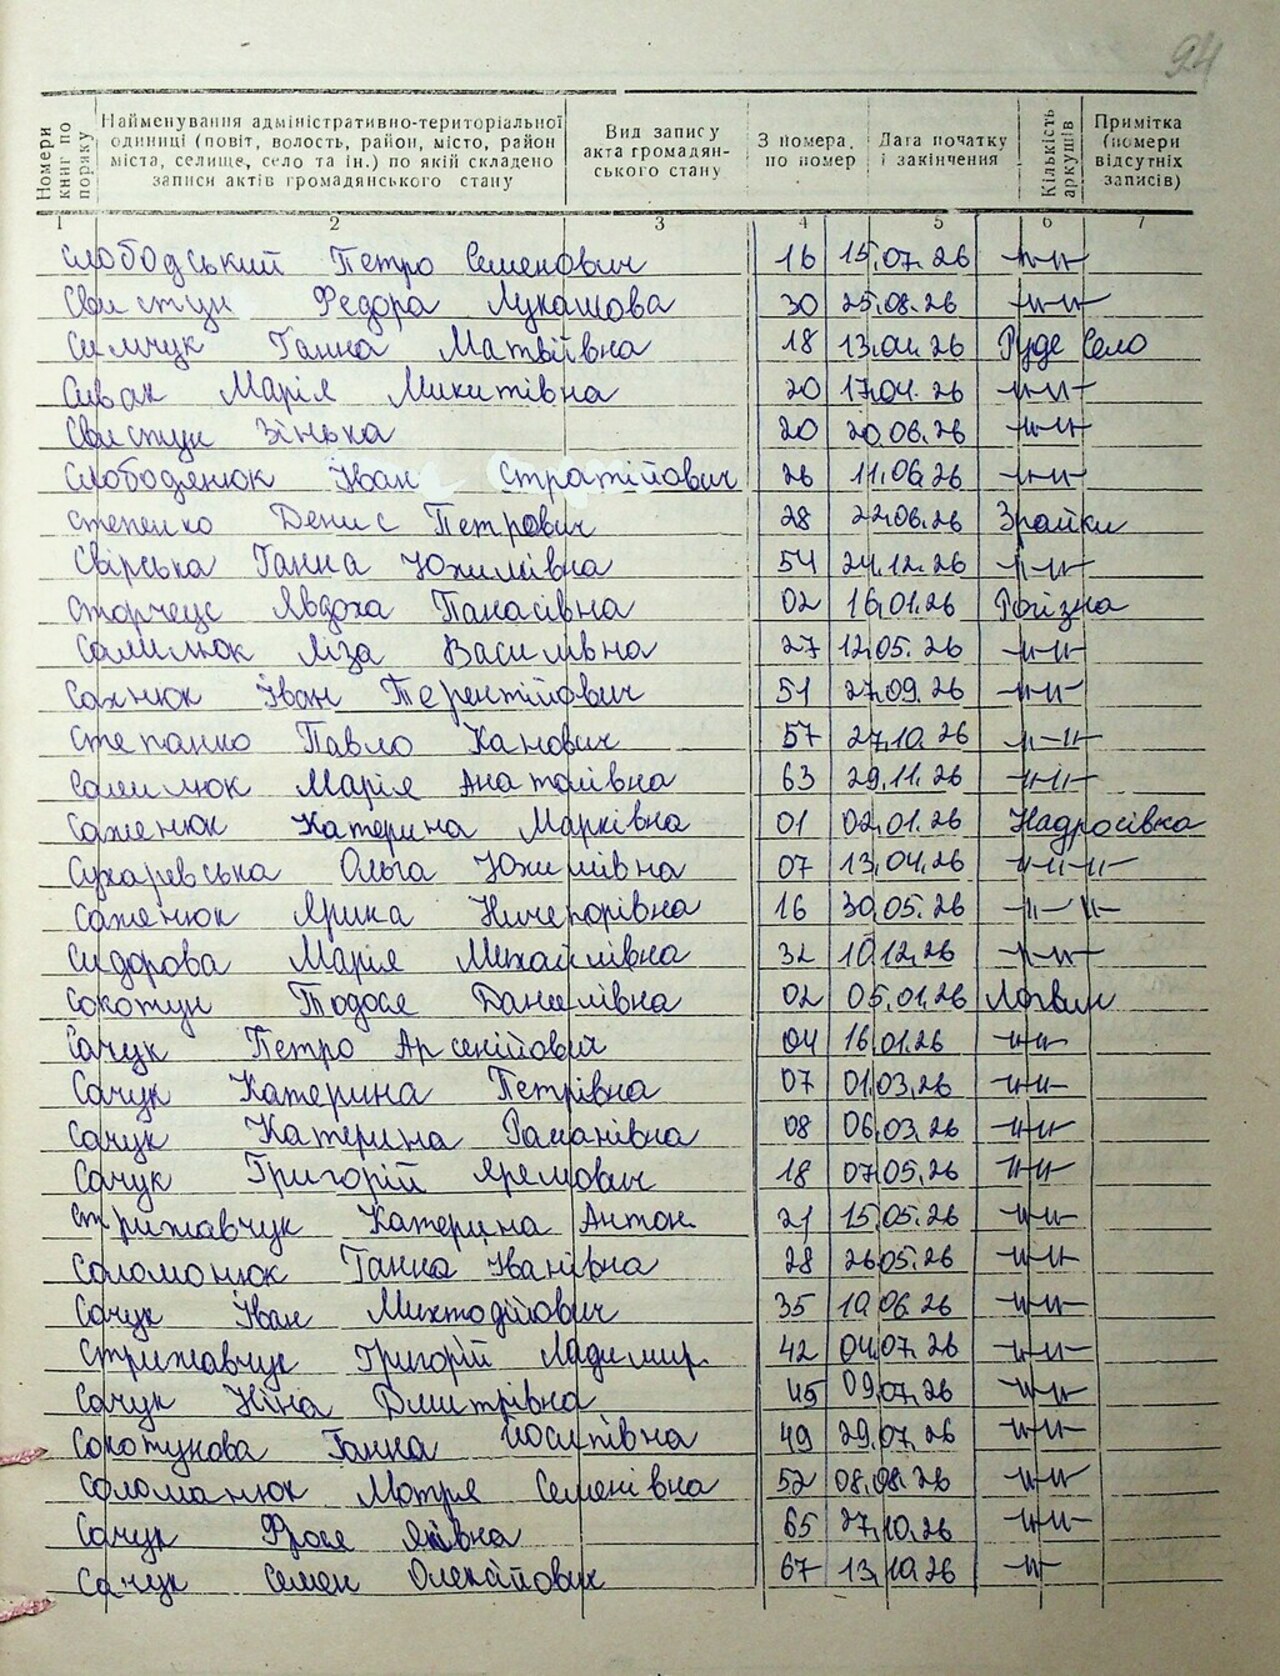 94
Номери книг по порядку
Найменування адміністративно-територіальної одиниці (повіт, волость, район, місто, район міста, селище, село та ін.) по якій складено записи актів громадянського стану
Вид запису акта громадян-ського стану
З номера, по номер
Дата початку і закінчення
Кількість аркушів
Примітка (номери відсутніх записів)
1 2 3 4 5 6 7
Слободський Петро Семенович 16 15.07.26 -"-"-
Свистун Федора Лукашова 30 25.08.26 -"-"-
Симчук Ганна Матвіївна 18 13.04.26 Руде Село
Сивак Марія Микитівна 20 17.04.26 -"-"-
Свистун Зінька 20 20.06.26 -"-"-
Слободянюк Іван Стратійович 26 11.06.26 -"-"-
Степенко Денис Петрович 28 22.06.26 Зрайки
Свірська Ганна Юхимівна 54 24.12.26 -"-"-
Сторчеус Явдоха Панасівна 02 16.01.26 Рогізна
Самилюк Ліза Василівна 27 12.05.26 -"-"-
Сахнюк Іван Терентійович 51 27.09.26 -"-"-
Степанко Павло Канович 57 27.10.26 -"-"-
Самилюк Марія Анатолівна 63 29.11.26 -"-"-
Саженюк Катерина Марківна 01 02.01.26 Надросівка
Сухаревська Ольга Юхимівна 07 13.04.26 -"-"-
Саженюк Ярина Ничепорівна 16 30.05.26 -"-"-
Сидорова Марія Михайлівна 32 10.12.26 -"-"-
Сокотун Тодося Данилівна 02 05.01.26 Логвин
Сачук Петро Арсенійович 04 16.01.26 -"-"-
Сачук Катерина Петрівна 07 01.03.26 -"-"-
Сачук Катерина Романівна 08 06.03.26 -"-"-
Сачук Григорій Яремович 18 07.05.26 -"-"-
Стрижавчук Катерина Антон. 21 15.05.26 -"-"-
Соломонюк Ганна Іванівна 28 26.05.26 -"-"-
Сачук Іван Михтодійович 35 10.06.26 -"-"-
Стрижавчук Григорій Ладимир. 42 04.07.26 -"-"-
Сачук Ніна Дмитрівна 45 09.07.26 -"-"-
Сокотунова Ганна Йосипівна 49 29.07.26 -"-"-
Соломанюк Мотря Семенівна 52 08.08.26 -"-"-
Сачук Фрося Яківна 65 27.10.26 -"-"-
Сачук Семен Олексійович 67 13.10.26 -"-